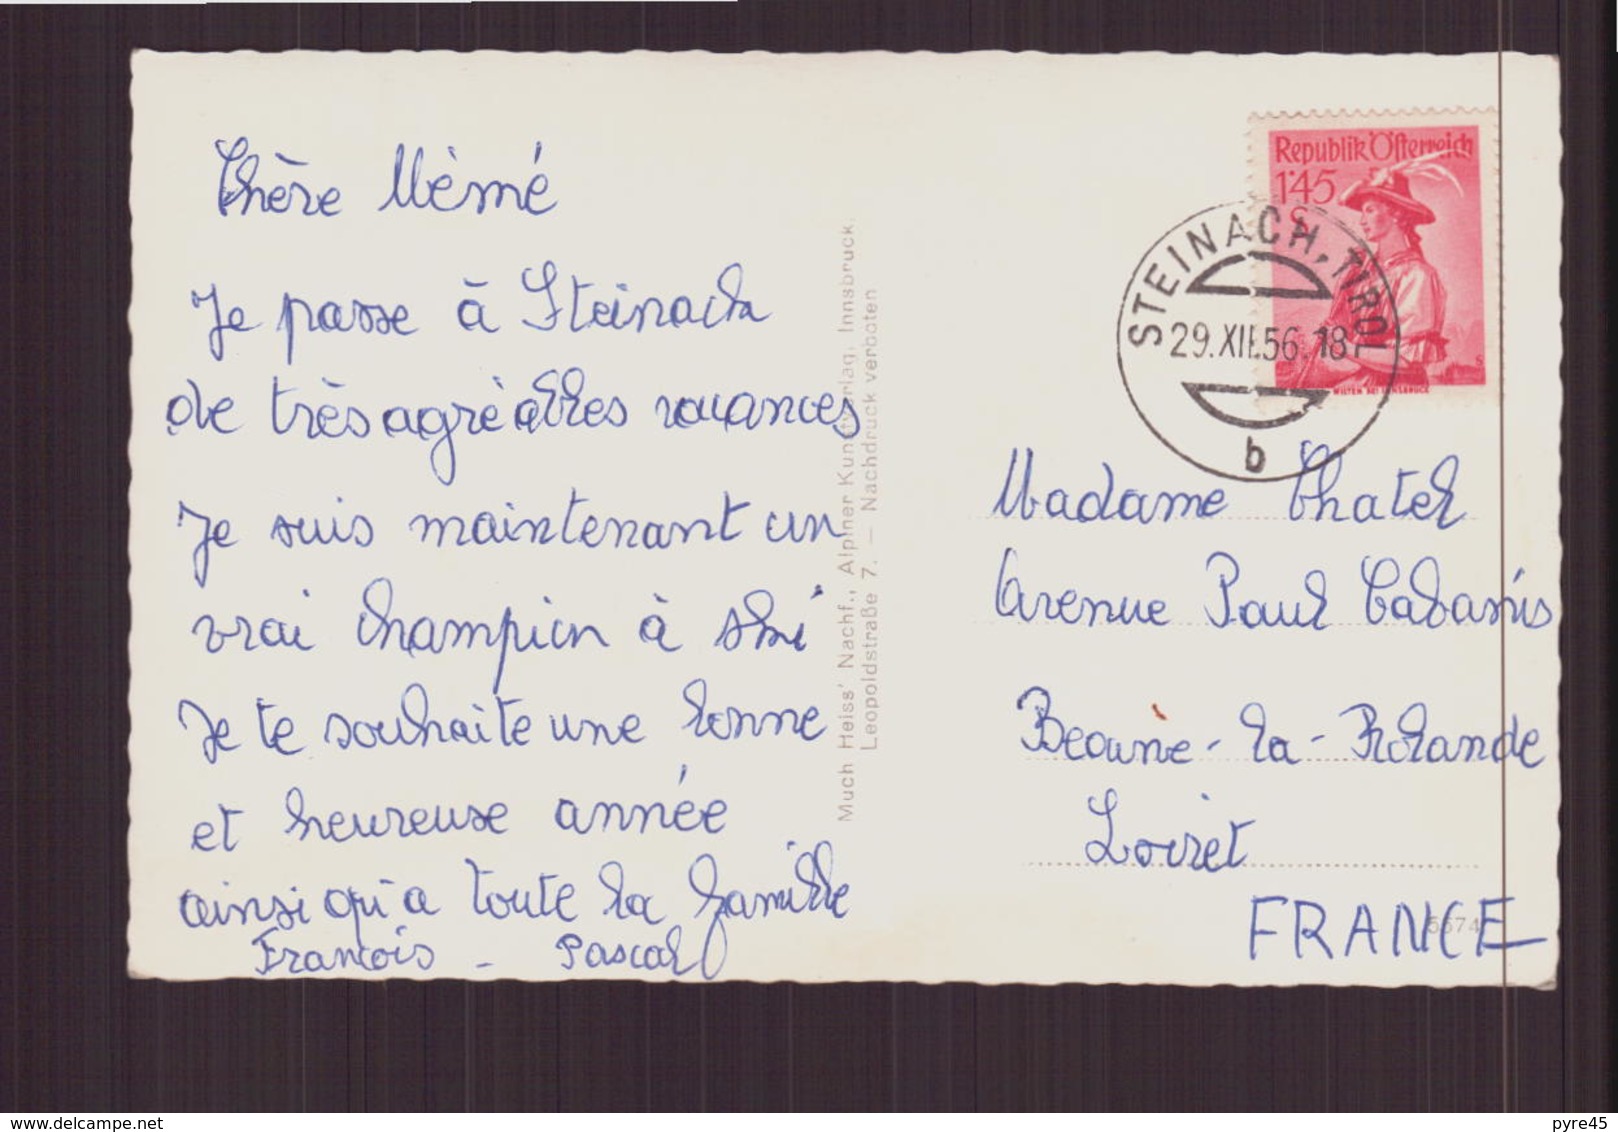 Chère Mémé
Je passe à Steinach
de très agréables vacances
Je suis maintenant un
vrai champion à ski
Je te souhaite une bonne
et heureuse année
ainsi qu'a toute la famille
François - Pascal
Much Heiss' Nachf., Alpiner Kunstverlag, Innsbruck.
Leopoldstraße 7. — Nachdruck verboten
Republik Österreich
1'45
S
WILTEN BEI INNSBRUCK
STEINACH, TIROL
29.XII.56.18
b
Madame Chatel
Avenue Paul Cabanis
Beaune-la-Rolande
Loiret
FRANCE
5574
delcampe.net
pyre45